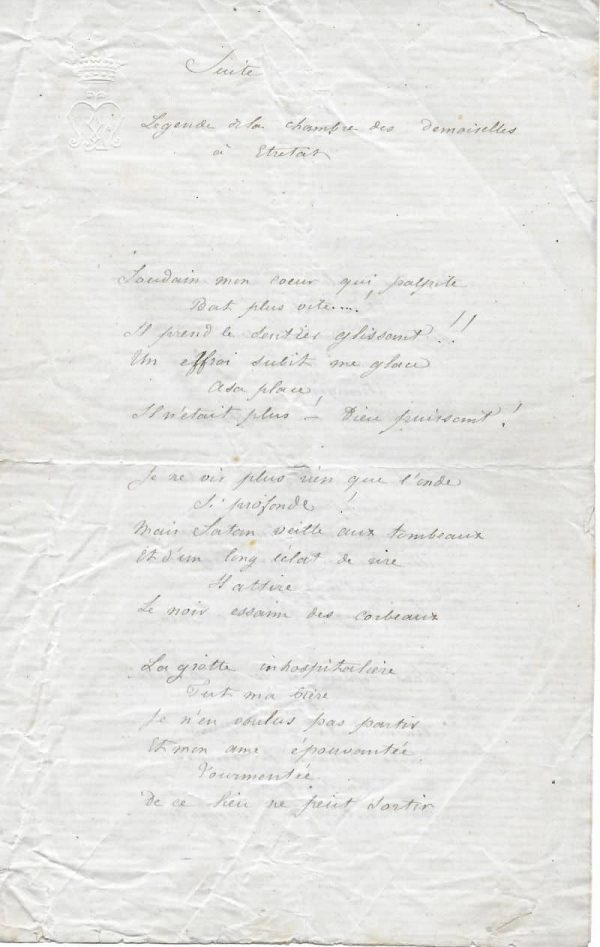 Suite
Légende de la chambre des demoiselles
à Etretat
Soudain mon coeur qui palpite
Bat plus vite....!
Il prend le sentier glissant !!
Un effroi subit me glace
A sa place
Il n'était plus ! — Dieu puissant !
Je ne vis plus rien que l'onde
Si profonde !
Mais Satan veille aux tombeaux
Et d'un long éclat de rire
Il attire
Le noir essaim des corbeaux
La grotte inhospitalière
Fut ma bière
Je n'en voulus pas partir
Et mon ame épouvantée
Tourmentée
De ce lieu ne peut sortir